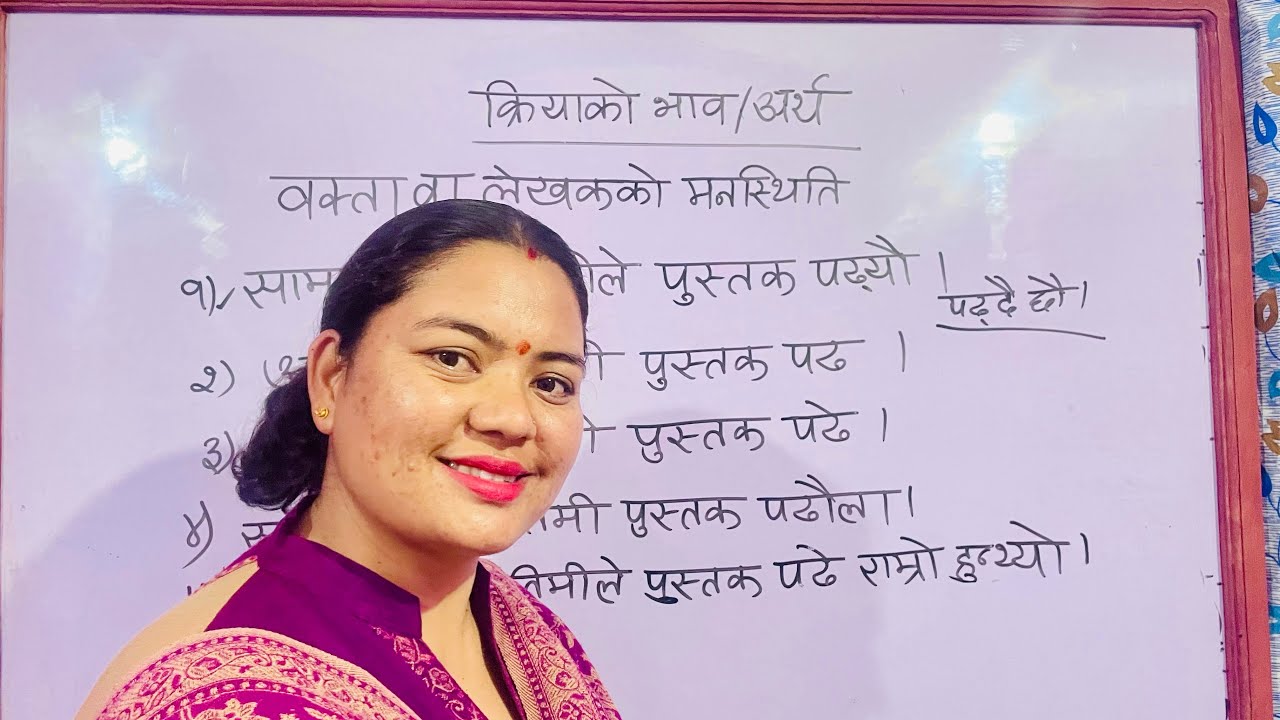 क्रियाको भाव/अर्थ
वक्ता वा लेखकको मनस्थिति
१) पुस्तक पढ्यौ ।
पढ्दै छौ।
२) पुस्तक पढ ।
३) पुस्तक पढे ।
४) पुस्तक पढौला।
तिमीले पुस्तक पढे राम्रो हुन्थ्यो।